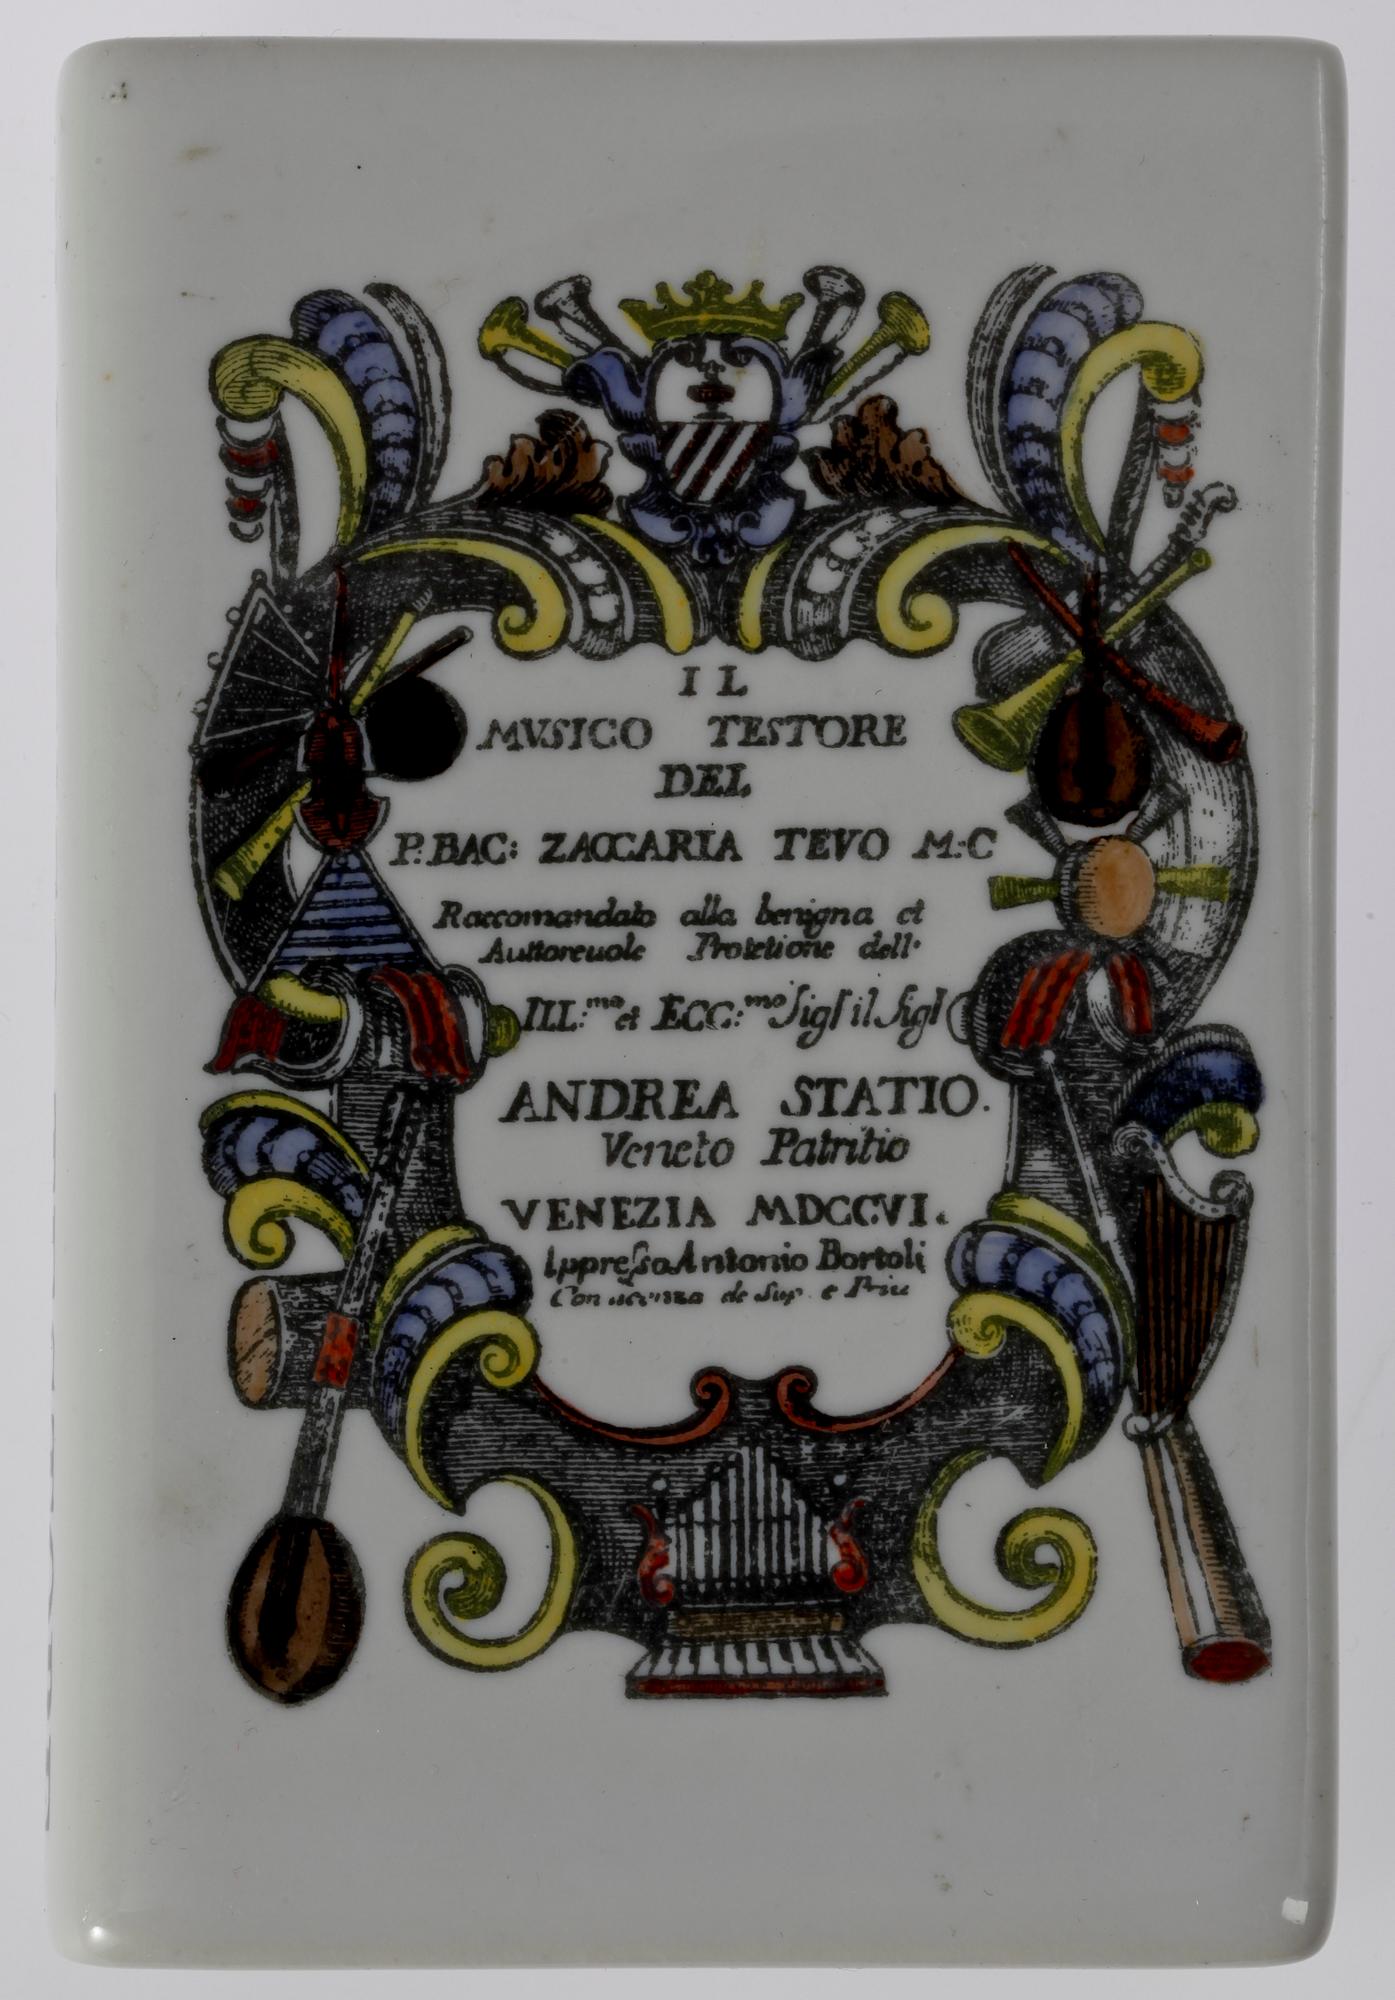 IL
MVSICO TESTORE
DEL
P. BAC: ZACCARIA TEVO M:C
Raccomandato alla benigna et
Auttoreuole Protetione dell'
ILL:mo et ECC:mo Sigr il Sigr
ANDREA STATIO.
Veneto Patritio
VENEZIA MDCCVI.
Ippresso Antonio Bortoli
Con de Sup. e Priu